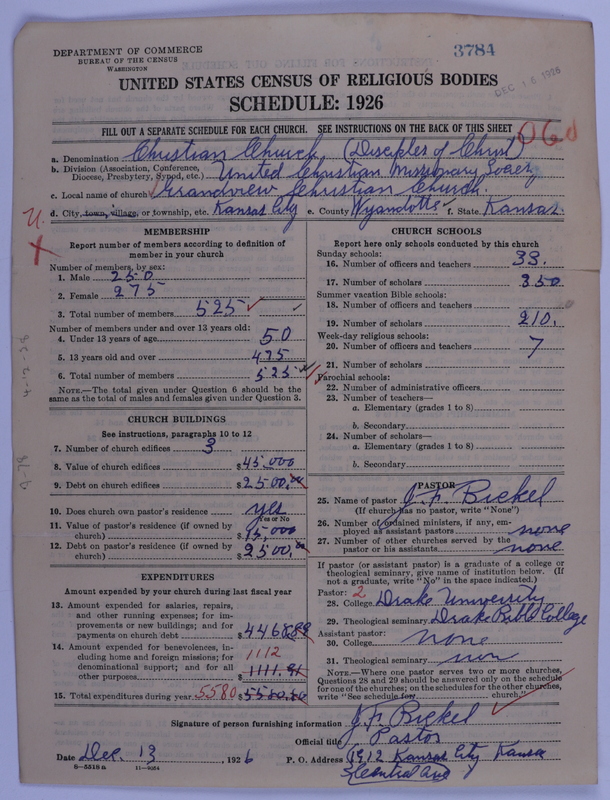 DEPARTMENT OF COMMERCE
BUREAU OF THE CENSUS
WASHINGTON
3784
DEC 16 1926
UNITED STATES CENSUS OF RELIGIOUS BODIES
SCHEDULE: 1926
FILL OUT A SEPARATE SCHEDULE FOR EACH CHURCH. SEE INSTRUCTIONS ON THE BACK OF THIS SHEET
060
a. Denomination Christian Church (Disciples of Christ)
b. Division (Association, Conference, Diocese, Presbytery, Synod, etc.) United Christian Missionary Society
c. Local name of church Grandview Christian Church.
d. City, town, village, or township, etc. Kansas City e. County Wyandotte f. State Kansas.
U.
X
4-12-28
9-78
MEMBERSHIP
Report number of members according to definition of
member in your church
Number of members, by sex:
1. Male 250
2. Female 275
3. Total number of members 525
Number of members under and over 13 years old:
4. Under 13 years of age 50
5. 13 years old and over 475
6. Total number of members 525
NOTE.—The total given under Question 6 should be the
same as the total of males and females given under Question 3.
CHURCH BUILDINGS
See instructions, paragraphs 10 to 12
7. Number of church edifices 3
8. Value of church edifices $45,000
9. Debt on church edifices $2500.00
10. Does church own pastor's residence yes
Yes or No
11. Value of pastor's residence (if owned by
church) $15,000
12. Debt on pastor's residence (if owned by
church) $2500.00
EXPENDITURES
Amount expended by your church during last fiscal year
13. Amount expended for salaries, repairs,
and other running expenses; for im-
provements or new buildings; and for
payments on church debt $4468.89
14. Amount expended for benevolences, in-
cluding home and foreign missions; for
denominational support; and for all
other purposes 1112 $1111.91
15. Total expenditures during year 5580 $5580.80
CHURCH SCHOOLS
Report here only schools conducted by this church
Sunday schools:
16. Number of officers and teachers 33.
17. Number of scholars 350
Summer vacation Bible schools:
18. Number of officers and teachers
19. Number of scholars 210.
Week-day religious schools:
20. Number of officers and teachers 7
21. Number of scholars
Parochial schools:
22. Number of administrative officers
23. Number of teachers—
a. Elementary (grades 1 to 8)
b. Secondary
24. Number of scholars—
a. Elementary (grades 1 to 8)
b. Secondary
PASTOR
25. Name of pastor J. F. Bickel
(If church has no pastor, write "None")
26. Number of ordained ministers, if any, em-
ployed as assistant pastors none
27. Number of other churches served by the
pastor or his assistants none
If pastor (or assistant pastor) is a graduate of a college or
theological seminary, give name of institution below. (If
not a graduate, write "No" in the space indicated.)
Pastor: 2
28. College Drake University
29. Theological seminary Drake Bible College
Assistant pastor:
30. College none
31. Theological seminary non
NOTE.—Where one pastor serves two or more churches,
Questions 28 and 29 should be answered only on the schedule
for one of the churches; on the schedules for the other churches,
write "See schedule for church."
Signature of person furnishing information J. F. Bickel
Official title Pastor
Date Dec. 13, 1926 P. O. Address 1912 Kansas City Kansa
Central Ave
8—5518 a 11—9054